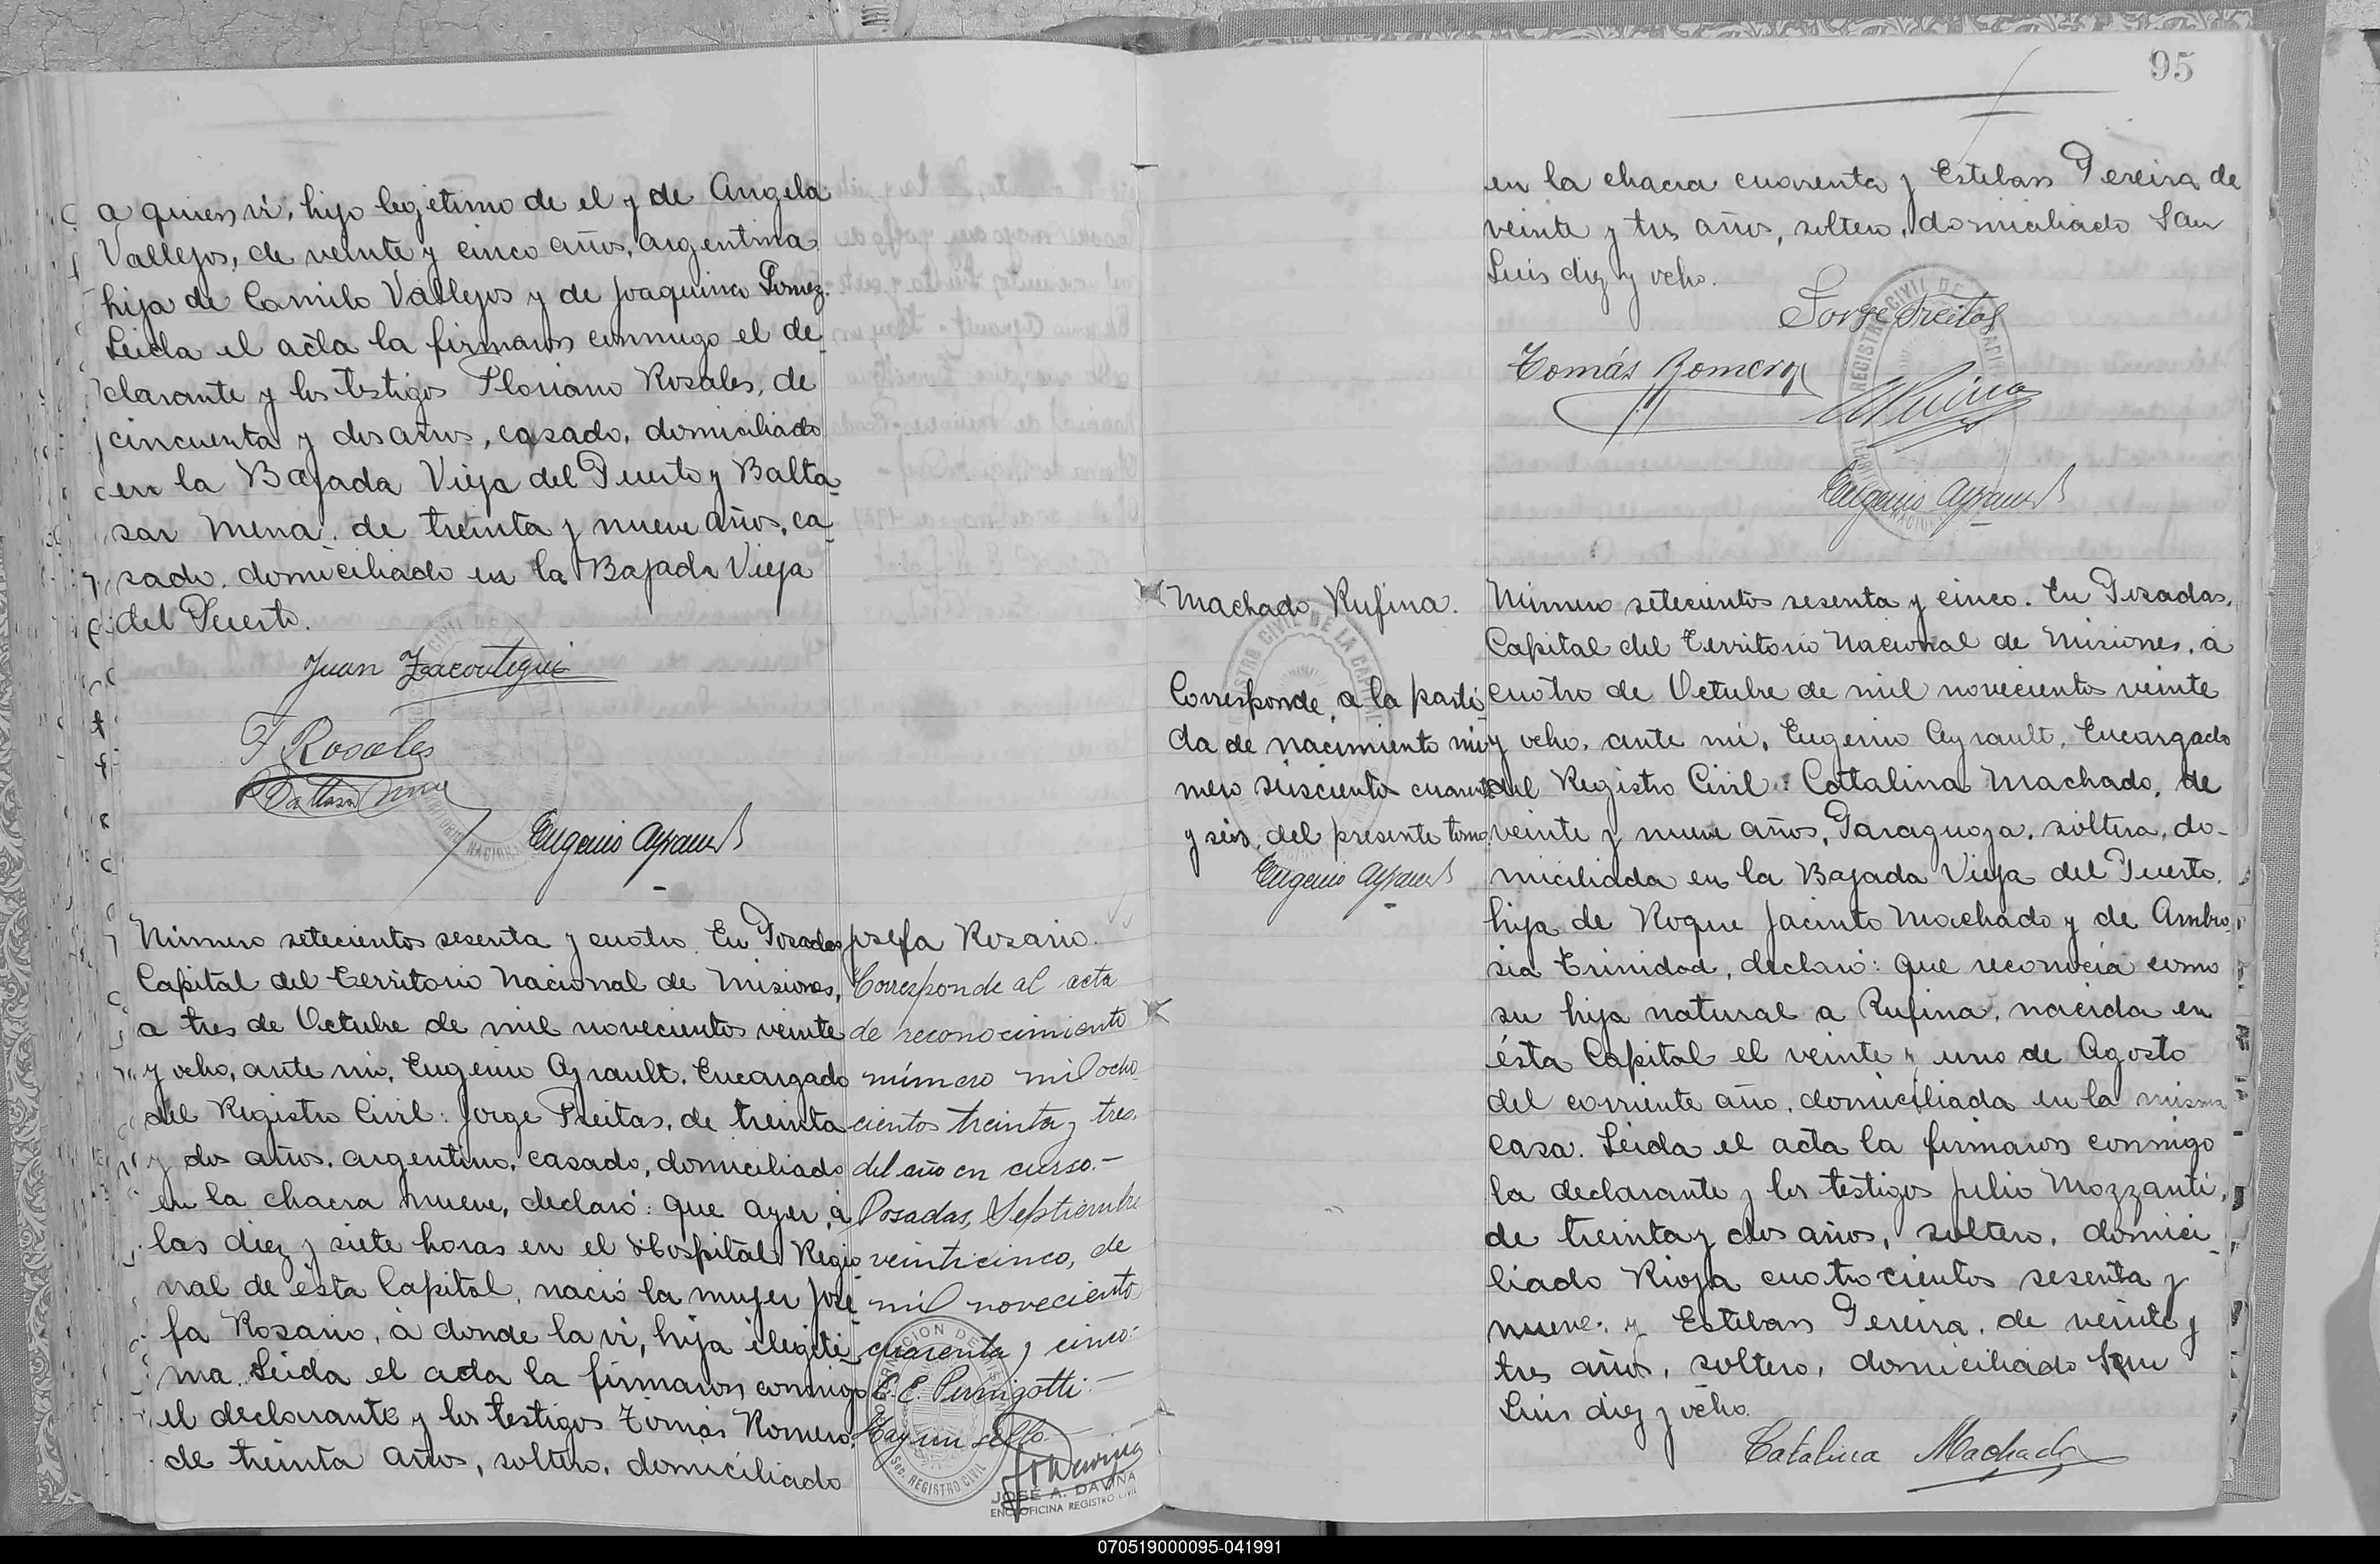 a quien vi, hijo legítimo de el y de Angela
Vallejos, de veinte y cinco años, argentina
hija de Camilo Vallejos y de Joaquina Gomez.
Leida el acta la firmaron conmigo el de-
clarante y los testigos Floriano Rosales, de
cincuenta y dos años, casado, domiciliado
en la Bajada Vieja del Puerto y Balta-
sar Mena, de treinta y nueve años, ca-
sado, domiciliado en la Bajada Vieja
del Puerto.
Juan
F Rosales
Eugenio Ayrault
Número setecientos sesenta y cuatro. En Posadas
Capital del Territorio Nacional de Misiones,
a tres de Octubre de mil novecientos veinte
y ocho, ante mi, Eugenio Ayrault, Encargado
del Registro Civil: Jorge Freitas, de treinta
y dos años, argentino, casado, domiciliado
en la chacra nueve, declaró: que ayer, á
las diez y siete horas en el Hospital Regio
nal de ésta Capital, nació la mujer Jose-
fa Rosario, á donde la vi, hija ilegíti-
ma. Leida el acta la firmaron conmigo
el declarante y los testigos Tomás Romero,
de treinta años, soltero, domiciliado
Josefa Rosario.
Corresponde al acta
de reconocimiento
número mil ocho-
cientos treinta y tres,
del año en curso.-
Posadas, Septiembre
veinticinco, de
mil noveciento
cuarenta y cinco.-
E. E. Pernigotti.-
Hay un sello
SEC. REGISTRO CIVIL
JOSE A. DAVIÑA
ENC. OFICINA REGISTRO CIVIL
95
en la chacra cuarenta y Esteban Pereira de
veinte y tres años, soltero, domiciliado San
Luis diez y ocho.
Jorge Freitas
Tomás Romero
Eugenio Ayrault
Machado Rufina.
REGISTRO CIVIL DE LA CAPITAL
Corresponde, a la parti-
da de nacimiento nú-
mero seiscientos cuarenta
y seis, del presente tomo.
Eugenio Ayrault
Número setecientos sesenta y cinco. En Posadas,
Capital del Territorio Nacional de Misiones, á
cuatro de Octubre de mil novecientos veinte
y ocho, ante mi, Eugenio Ayrault, Encargado
del Registro Civil: Catalina Machado, de
veinte y nueve años, Paraguaya, soltera, do-
miciliada en la Bajada Vieja del Puerto,
hija de Roque Jacinto Machado y de Ambro-
sia Trinidad, declaró: que reconocía como
su hija natural a Rufina, nacida en
ésta Capital el veinte y uno de Agosto
del corriente año, domiciliada en la misma
casa. Leida el acta la firmaron conmigo
la declarante y los testigos Julio Mozzanti,
de treinta y dos años, soltero, domici-
liado Rioja cuatrocientos sesenta y
nueve, y Esteban Pereira, de veinte y
tres años, soltero, domiciliado San
Luis diez y ocho.
Catalina Machado
070519000095-041991